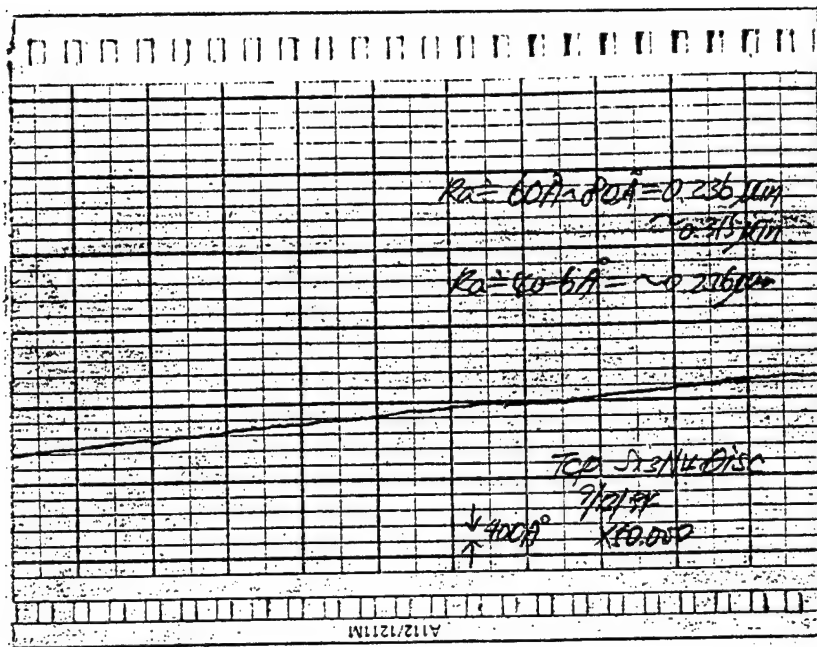 Ra = 60Å~80Å = 0.236 µin
~0.315 µin
Ra = ~0.236 µin
Top Si3N4 Disc
400A° X50.000
A112/1211M